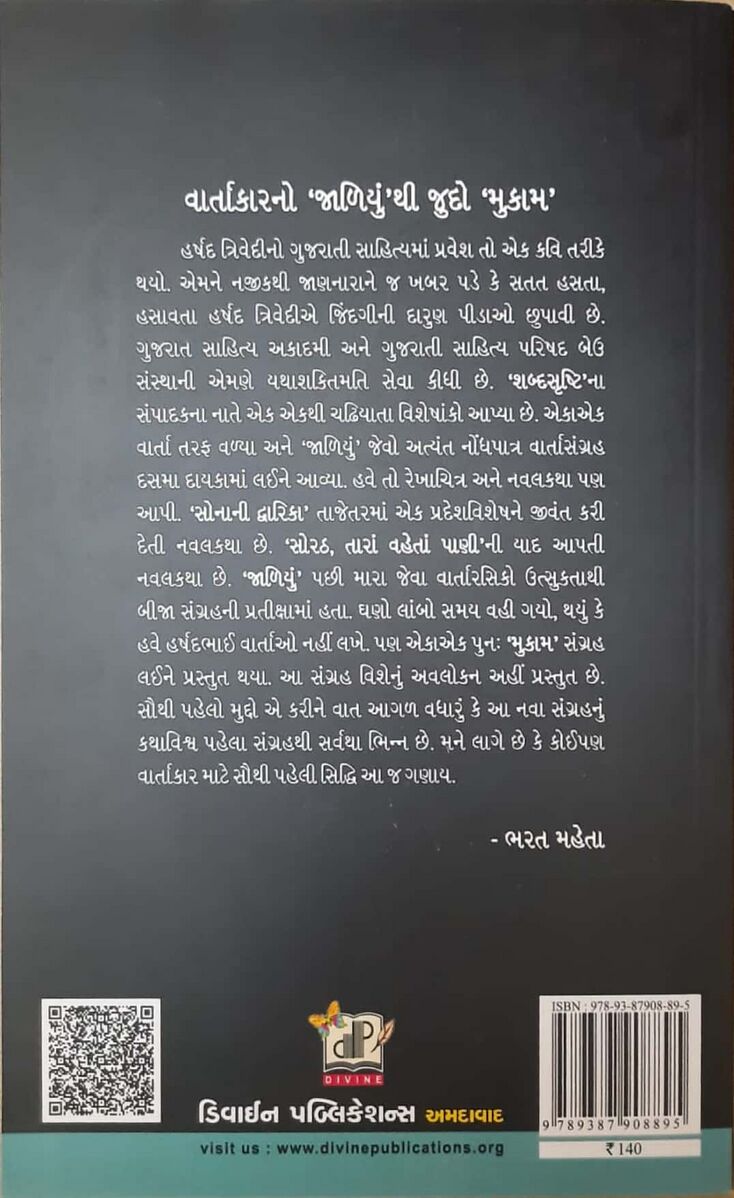 વાર્તાકારનો ‘જાળિયું’થી જુદો ‘મુકામ’
હર્ષદ ત્રિવેદીનો ગુજરાતી સાહિત્યમાં પ્રવેશ તો એક કવિ તરીકે
થયો. એમને નજીકથી જાણનારાને જ ખબર પડે કે સતત હસતા,
હસાવતા હર્ષદ ત્રિવેદીએ જિંદગીની દારુણ પીડાઓ છુપાવી છે.
ગુજરાત સાહિત્ય અકાદમી અને ગુજરાતી સાહિત્ય પરિષદ બેઉ
સંસ્થાની એમણે યથાશકિતમતિ સેવા કીધી છે. ‘શબ્દસૃષ્ટિ’ના
સંપાદકના નાતે એક એકથી ચઢિયાતા વિશેષાંકો આપ્યા છે. એકાએક
વાર્તા તરફ વળ્યા અને ‘જાળિયું’ જેવો અત્યંત નોંધપાત્ર વાર્તાસંગ્રહ
દસમા દાયકામાં લઈને આવ્યા. હવે તો રેખાચિત્ર અને નવલકથા પણ
આપી. ‘સોનાની દ્વારિકા’ તાજેતરમાં એક પ્રદેશવિશેષને જીવંત કરી
દેતી નવલકથા છે. ‘સોરઠ, તારાં વહેતાં પાણી’ની યાદ આપતી
નવલકથા છે. ‘જાળિયું’ પછી મારા જેવા વાર્તારસિકો ઉત્સુકતાથી
બીજા સંગ્રહની પ્રતીક્ષામાં હતા. ઘણો લાંબો સમય વહી ગયો, થયું કે
હવે હર્ષદભાઈ વાર્તાઓ નહીં લખે. પણ એકાએક પુનઃ ‘મુકામ’ સંગ્રહ
લઈને પ્રસ્તુત થયા. આ સંગ્રહ વિશેનું અવલોકન અહીં પ્રસ્તુત છે.
સૌથી પહેલો મુદ્દો એ કરીને વાત આગળ વધારું કે આ નવા સંગ્રહનું
કથાવિશ્વ પહેલા સંગ્રહથી સર્વથા ભિન્ન છે. મને લાગે છે કે કોઈપણ
વાર્તાકાર માટે સૌથી પહેલી સિદ્ધિ આ જ ગણાય.
- ભરત મહેતા
ISBN : 978-93-87908-89-5
dP
DIVINE
ડિવાઈન પબ્લિકેશન્સ અમદાવાદ
9 789387 908895
visit us : www.divinepublications.org
₹ 140